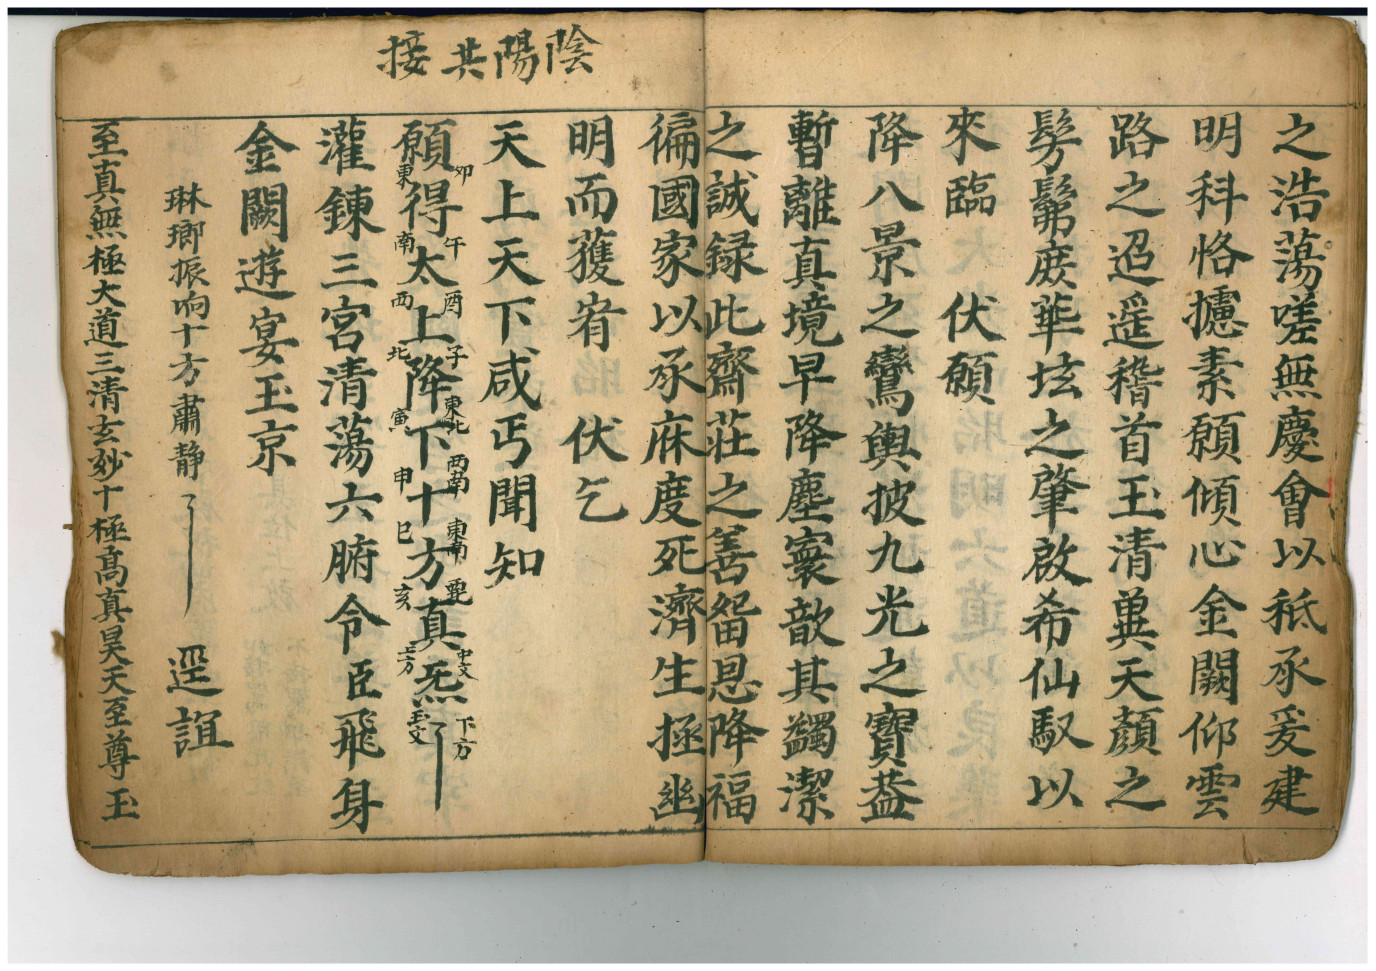 陰陽共接
之浩蕩嗟無慶會以秪承爰建
明科恪攄素願傾心金闕仰雲
路之迢遥稽首玉清冀天顏之
髣髴庻蕐坛之肇啟希仙馭以
來臨　伏願
降八景之鸞輿披九光之寶葢
暫離真境早降塵寰歆其蠲潔
之誠録此齋莊之善畱恩降福
徧國家以承庥度死濟生拯幽
明而獲宥　伏乞
天上天下咸丐聞知
願得太上降下十方真炁
卯午酉子東北西南東南乹中文下方
東南西北寅申巳亥上方玉文
灌錬三宮清蕩六腑令臣飛身
金闕遊宴玉京
琳瑯振响十方肅静　逕誼
至真無極大道三清玄妙十極髙真昊天至尊玉